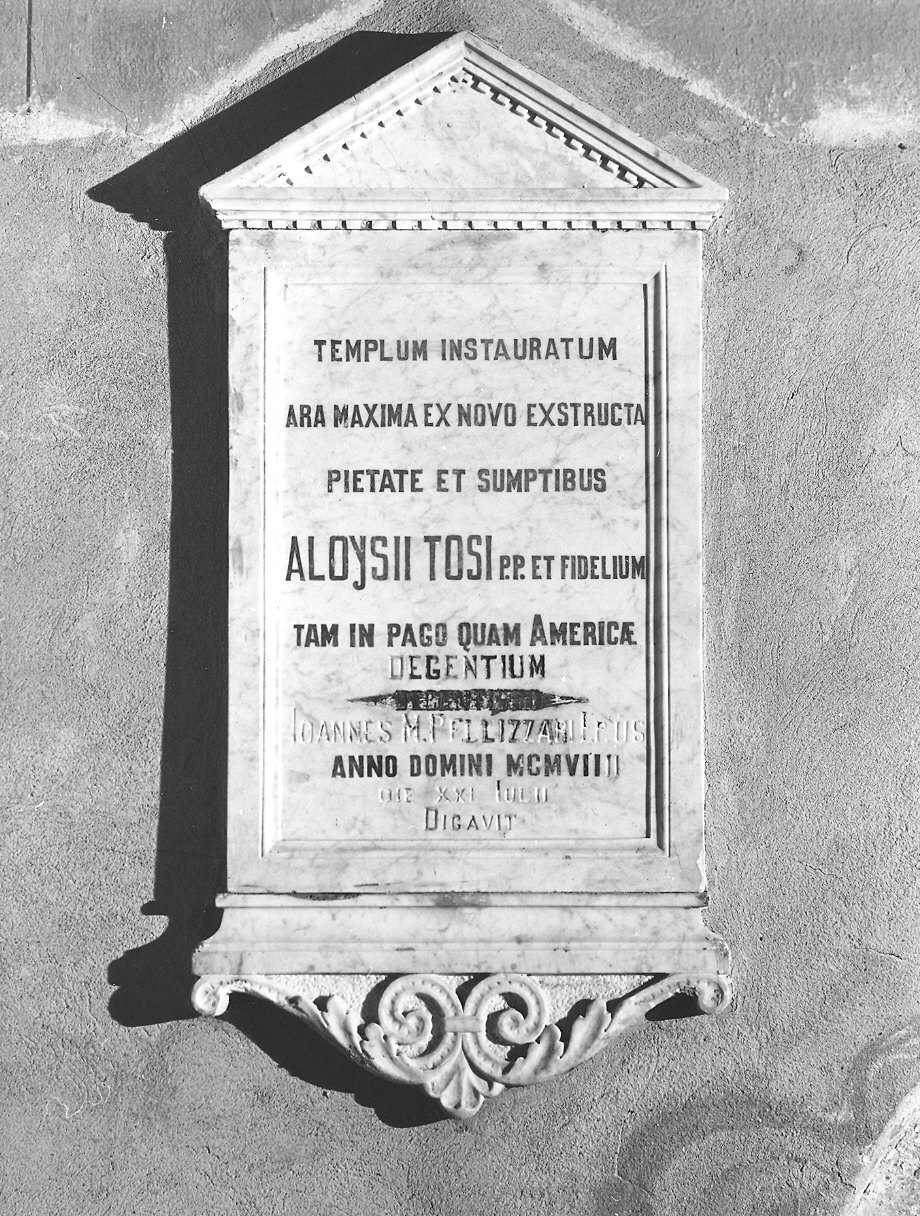 TEMPLUM INSTAURATUM
ARA MAXIMA EX NOVO EXSTRUCTA
PIETATE ET SUMPTIBUS
ALOYSII TOSI P.P. ET FIDELIUM
TAM IN PAGO QUAM AMERICÆ
DEGENTIUM
IOANNES M. PELLIZZARI EPUS
ANNO DOMINI MCMVIIII
DIE XXI IULII
DICAVIT